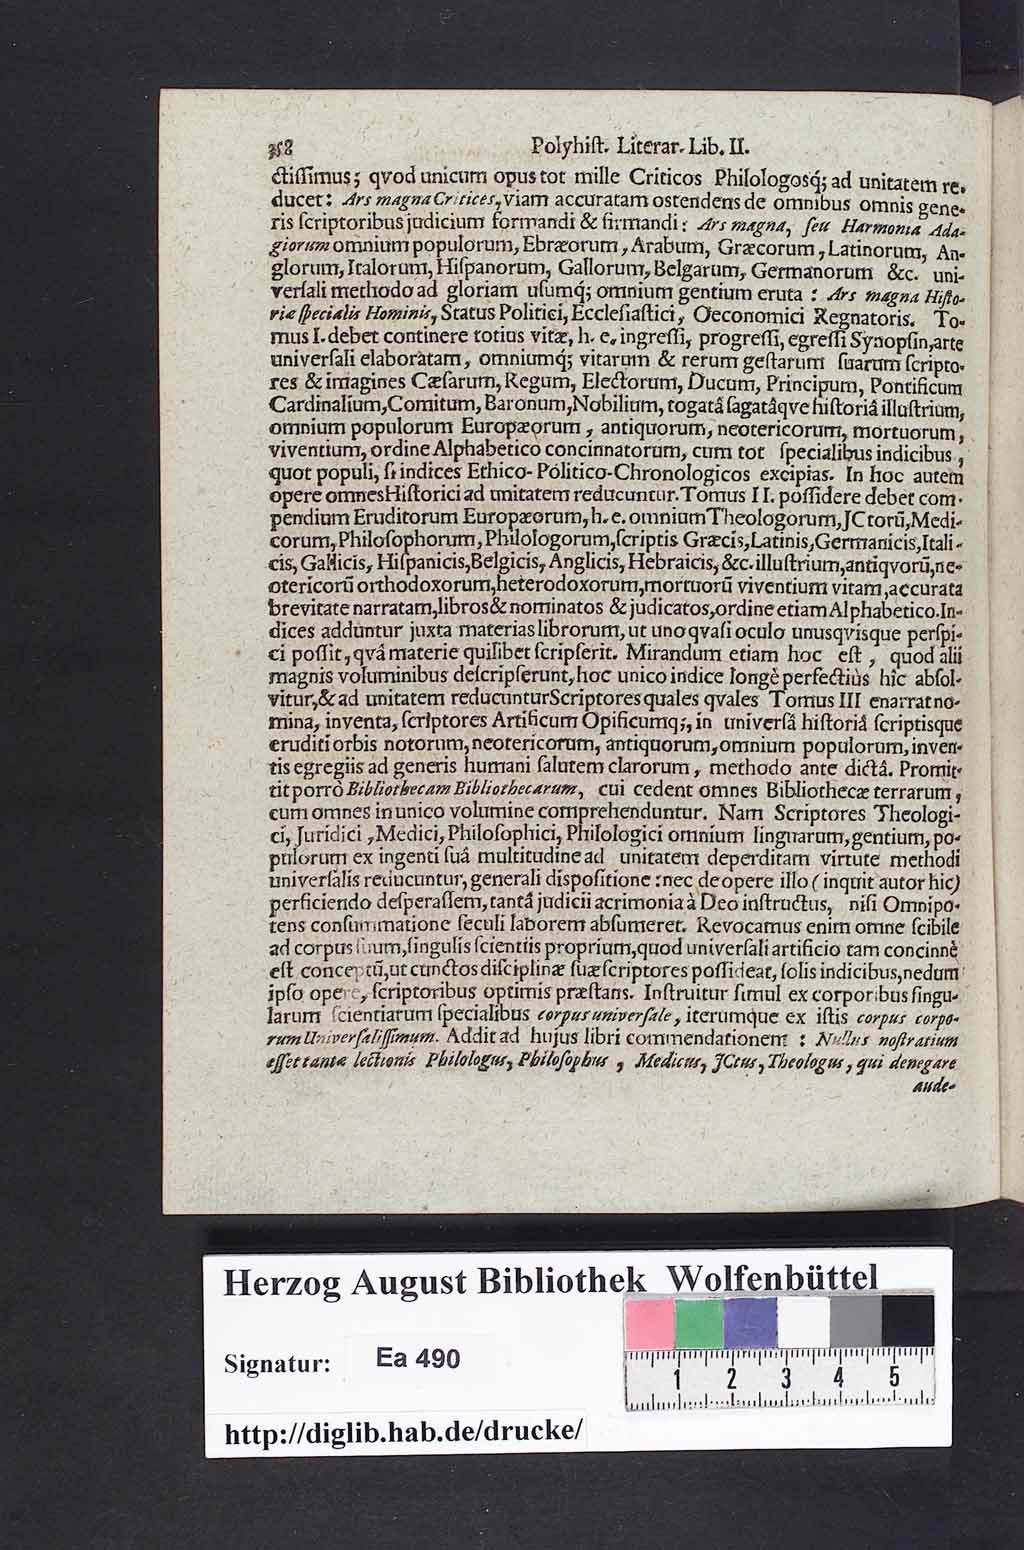 358 Polyhiſt. Literar. Lib. II.
ctiſſimus; qvod unicum opus tot mille Criticos Philologosq́; ad unitatem re-
ducet: Ars magna Critices, viam accuratam ostendens de omnibus omnis gene-
ris ſcriptoribus judicium formandi & firmandi: Ars magna, ſeu Harmonia Ada-
giorum omnium populorum, Ebræorum, Arabum, Græcorum, Latinorum, An-
glorum, Italorum, Hiſpanorum, Gallorum, Belgarum, Germanorum &c. uni-
verſali methodo ad gloriam uſumq́; omnium gentium eruta: Ars magna Hiſto-
riæ ſpecialis Hominis, Status Politici, Eccleſiaſtici, Oeconomici Regnatoris. To-
mus I. debet continere totius vitæ, h. e. ingreſſi, progreſſi, egreſſi Synopſin, arte
univerſali elaboratam, omniumq́; vitarum & rerum geſtarum ſuarum ſcripto-
res & imagines Cæſarum, Regum, Electorum, Ducum, Principum, Pontificum
Cardinalium, Comitum, Baronum, Nobilium, togatâ ſagatâqve hiſtoriâ illuſtrium,
omnium populorum Europæorum, antiquorum, neotericorum, mortuorum,
viventium, ordine Alphabetico concinnatorum, cum tot ſpecialibus indicibus,
quot populi, ſi indices Ethico-Politico-Chronologicos excipias. In hoc autem
opere omnes Hiſtorici ad unitatem reducuntur. Tomus II. poſſidere debet com-
pendium Eruditorum Europæorum, h. e. omnium Theologorum, JCtorũ, Medi-
corum, Philoſophorum, Philologorum, ſcriptis Græcis, Latinis, Germanicis, Itali-
cis, Gallicis, Hiſpanicis, Belgicis, Anglicis, Hebraicis, &c. illuſtrium, antiqvorũ, ne-
otericorũ orthodoxorum, heterodoxorum, mortuorũ viventium vitam, accurata
brevitate narratam, libros & nominatos & judicatos, ordine etiam Alphabetico. In-
dices adduntur juxta materias librorum, ut uno qvaſi oculo unusqvisque perſpi-
ci poſſit, qvâ materie quilibet ſcripſerit. Mirandum etiam hoc eſt, quod alii
magnis voluminibus deſcripſerunt, hoc unico indice longè perfectiùs hîc abſol-
vitur, & ad unitatem reducuntur Scriptores quales qvales Tomus III enarrat no-
mina, inventa, ſcriptores Artificum Opificumq́;, in universâ hiſtoriâ ſcriptisque
eruditi orbis notorum, neotericorum, antiquorum, omnium populorum, inven-
tis egregiis ad generis humani ſalutem clarorum, methodo ante dictâ. Promit-
tit porrò Bibliothecam Bibliothecarum, cui cedent omnes Bibliothecæ terrarum,
cum omnes in unico volumine comprehenduntur. Nam Scriptores Theologi-
ci, Juridici, Medici, Philoſophici, Philologici omnium linguarum, gentium, po-
pulorum ex ingenti ſuâ multitudine ad unitatem deperditam virtute methodi
univerſalis reducuntur, generali dispoſitione: nec de opere illo (inquit autor hic)
perficiendo deſperaſſem, tantâ judicii acrimonia à Deo inſtructus, niſi Omnipo-
tens conſummatione ſeculi laborem abſumeret. Revocamus enim omne ſcibile
ad corpus ſuum, ſingulis ſcientiis proprium, quod univerſali artificio tam concinnè
eſt conceptũ, ut cunctos diſciplinæ ſuæ ſcriptores poſſideat, ſolis indicibus, nedum
ipſo opere, ſcriptoribus optimis præſtans. Inſtruitur ſimul ex corporibus ſingu-
larum ſcientiarum ſpecialibus corpus univerſale, iterumque ex iſtis corpus corpo-
rum Univerſaliſſimum. Addit ad hujus libri commendationem: Nullus noſtratium
eſſet tantæ lectionis Philologus, Philoſophus, Medicus, JCtus, Theologus, qui denegare
aude-
Herzog August Bibliothek Wolfenbüttel
Signatur: Ea 490
1 2 3 4 5
http://diglib.hab.de/drucke/